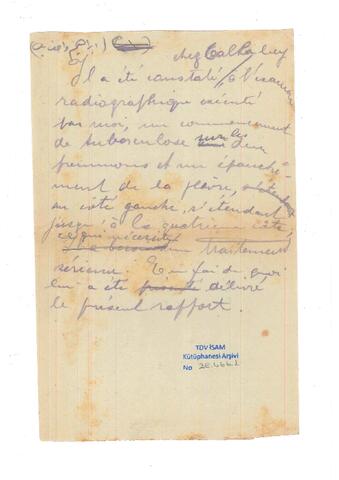 chez
Il a été constaté, à l'examen
radiographique exécuté
par moi, un commencement
de tuberculose sur les deux
poumons et un épanche-
ment de la plèvre,
au côté gauche, s'étendant
jusqu'à la quatrième côte,
ce qui nécessite
un traitement
sérieux. En foi de quoi
lui a été délivré
le présent rapport.
TDV İSAM
Kütüphanesi Arşivi
No 2E.4662